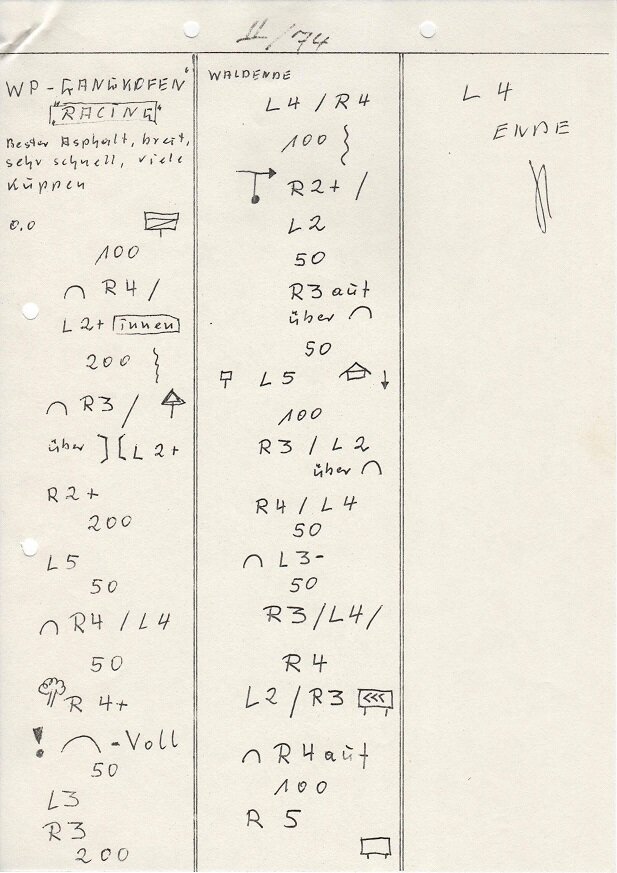 11/74
WP-GANGKOFEN"
"RACING"
Bester Asphalt, breit,
sehr schnell, viele
Kuppen
0.0
100
R4/
L2+ innen
200
R3/
über ][ L2+
R2+
200
L5
50
R4/L4
50
R4+
! -Voll
50
L3
R3
200
WALDENDE
L4/R4
100
R2+/
L2
50
R3 auf
über
50
L5
100
R3/L2
über
R4/L4
50
L3-
50
R3/L4/
R4
L2/R3 <<<
R4 auf
100
R5
L4
ENDE